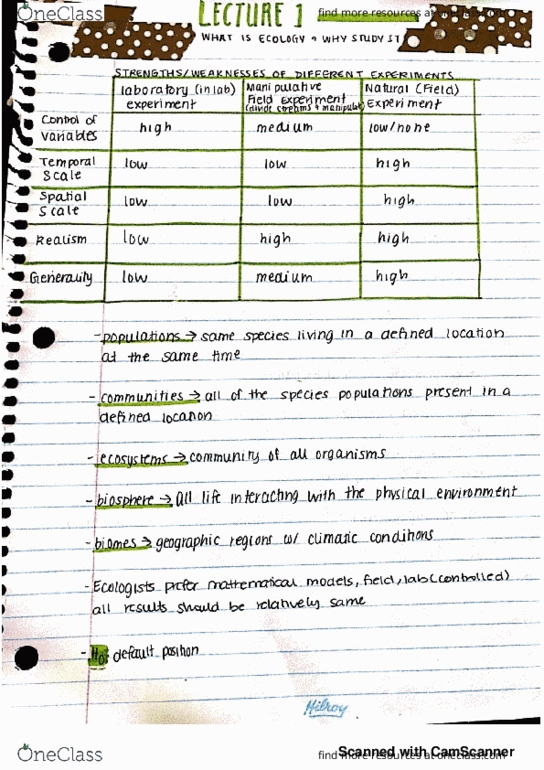 OneClass
LECTURE 1
find more resources at oneclass.com
WHAT IS ECOLOGY + WHY STUDY IT
STRENGTHS/WEAKNESSES OF DIFFERENT EXPERIMENTS
laboratory (in lab) experiment Manipulative Field experiment (divide streams + manipulate) Natural (Field) Experiment
Control of variables high medium low/none
Temporal Scale low low high
Spatial Scale low low high
Realism low high high
Generality low medium high
- populations → same species living in a defined location
at the same time
- communities → all of the species populations present in a
defined location
- ecosystems → community of all organisms
- biosphere → All life interacting with the physical environment
- biomes → geographic regions w/ climatic conditions
- Ecologists prefer mathematical models, field, lab (controlled)
all results should be relatively same
- H0: default position
Hilroy
Scanned with CamScanner
OneClass
find more resources at oneclass.com